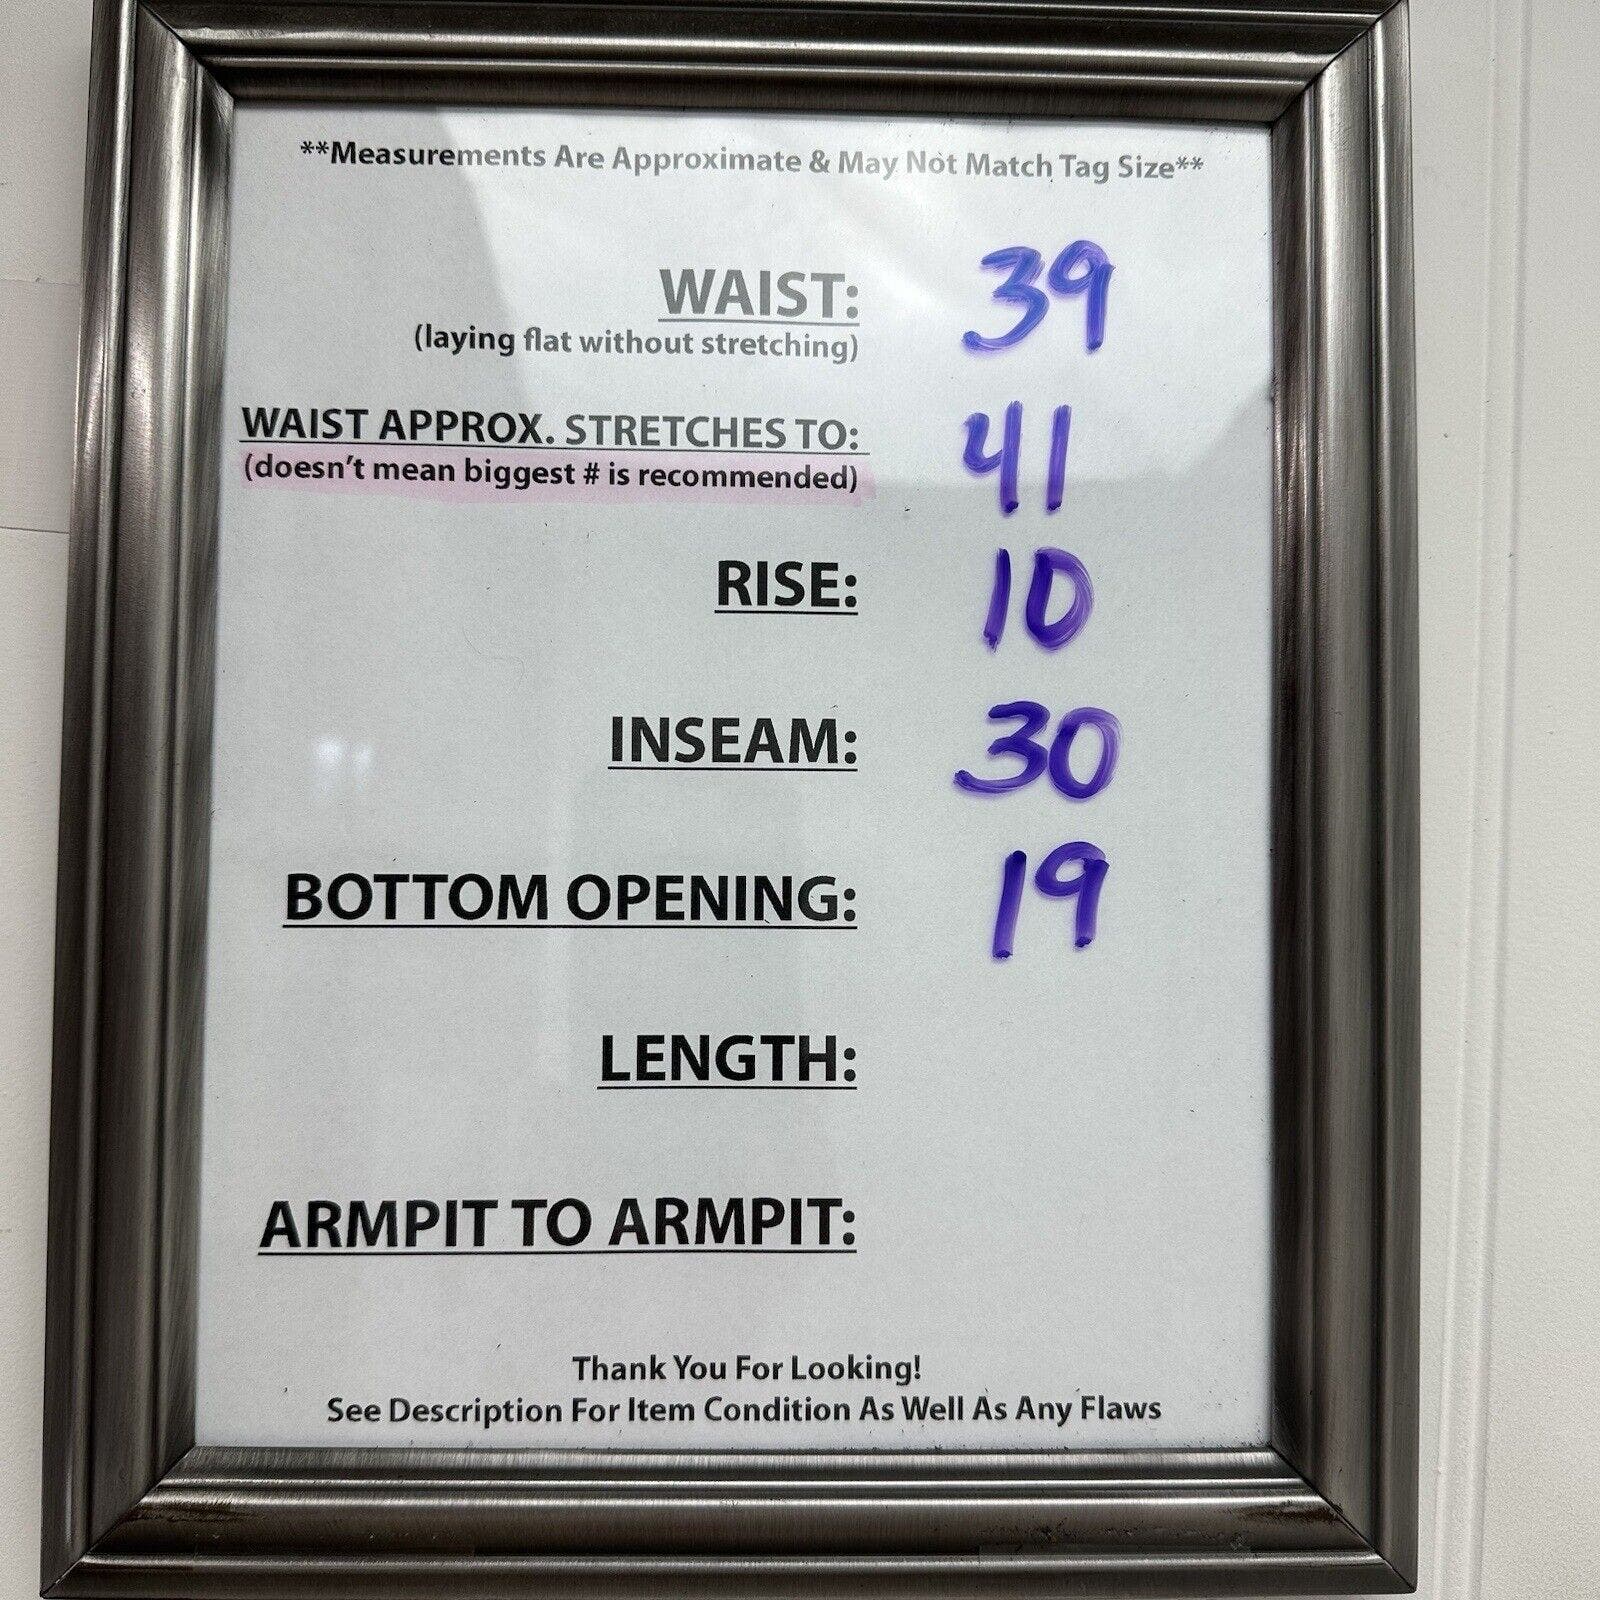 **Measurements Are Approximate & May Not Match Tag Size**
WAIST: 39
(laying flat without stretching)
WAIST APPROX. STRETCHES TO: 41
(doesn't mean biggest # is recommended)
RISE: 10
INSEAM: 30
BOTTOM OPENING: 19
LENGTH:
ARMPIT TO ARMPIT:
Thank You For Looking!
See Description For Item Condition As Well As Any Flaws